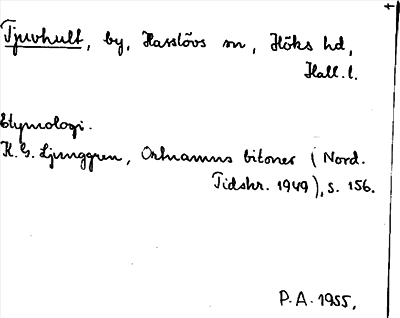 Tjuvhult, by, Hasslövs sn, Höks hd,
Hall. l.
Etymologi.
K. G. Ljunggren, Ortnamns bitoner (Nord.
Tidskr. 1949), s. 156.
P. A. 1955.